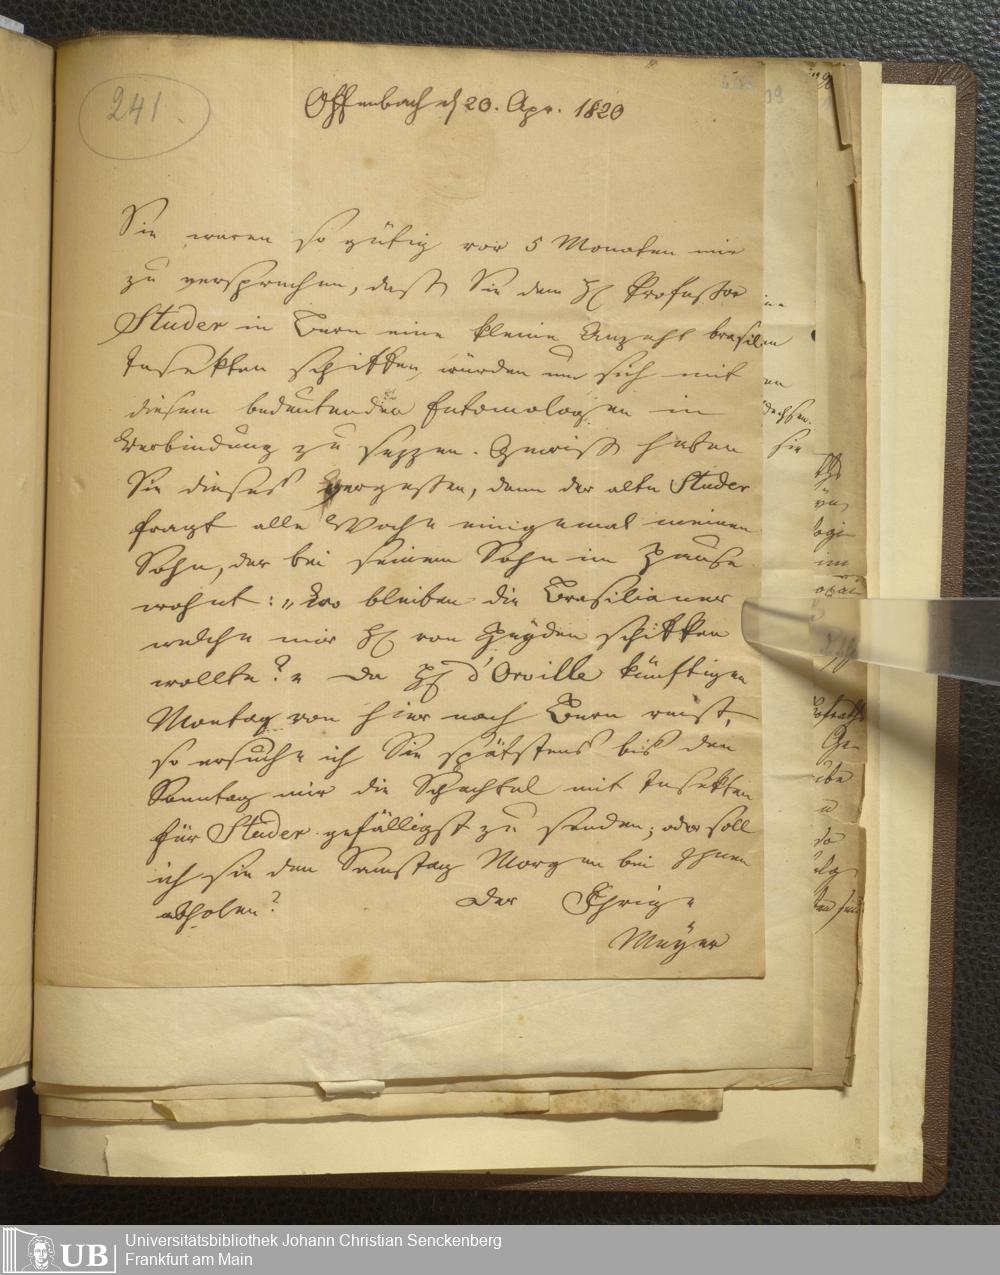 241.
Offenbach d 20. Apr. 1820
Sie waren so gütig vor 5 Monaten mir
zu versprechen, dass Sie dem H Professor
Studer in Bern eine kleine Anzahl brasilien
Insekten schikken würden um sich mit
diesem bedeutenden Entomologen in
Verbindung zu sezzen. Gewiss haben
Sie dieses vergessen, denn der alte Studer
fragt alle Woche einigemal meinen
Sohn, der bei seinem Sohn im Hause
wohnt: „wo bleiben die Brasilianer
welche mir H von Heyden schikken
wollte?" Da H d'Orville künftigen
Montag von hier nach Bern reist,
so ersuche ich Sie spätstens bis den
Sonntag mir die Schachtel mit Insekten
für Studer gefälligst zu senden; oder soll
ich sie den Samstag Morgen bei Ihnen
abholen? Der Ihrige
Meyer
UB
Universitätsbibliothek Johann Christian Senckenberg
Frankfurt am Main